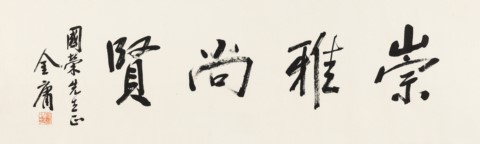 崇雅尚賢
國榮先生正
金庸